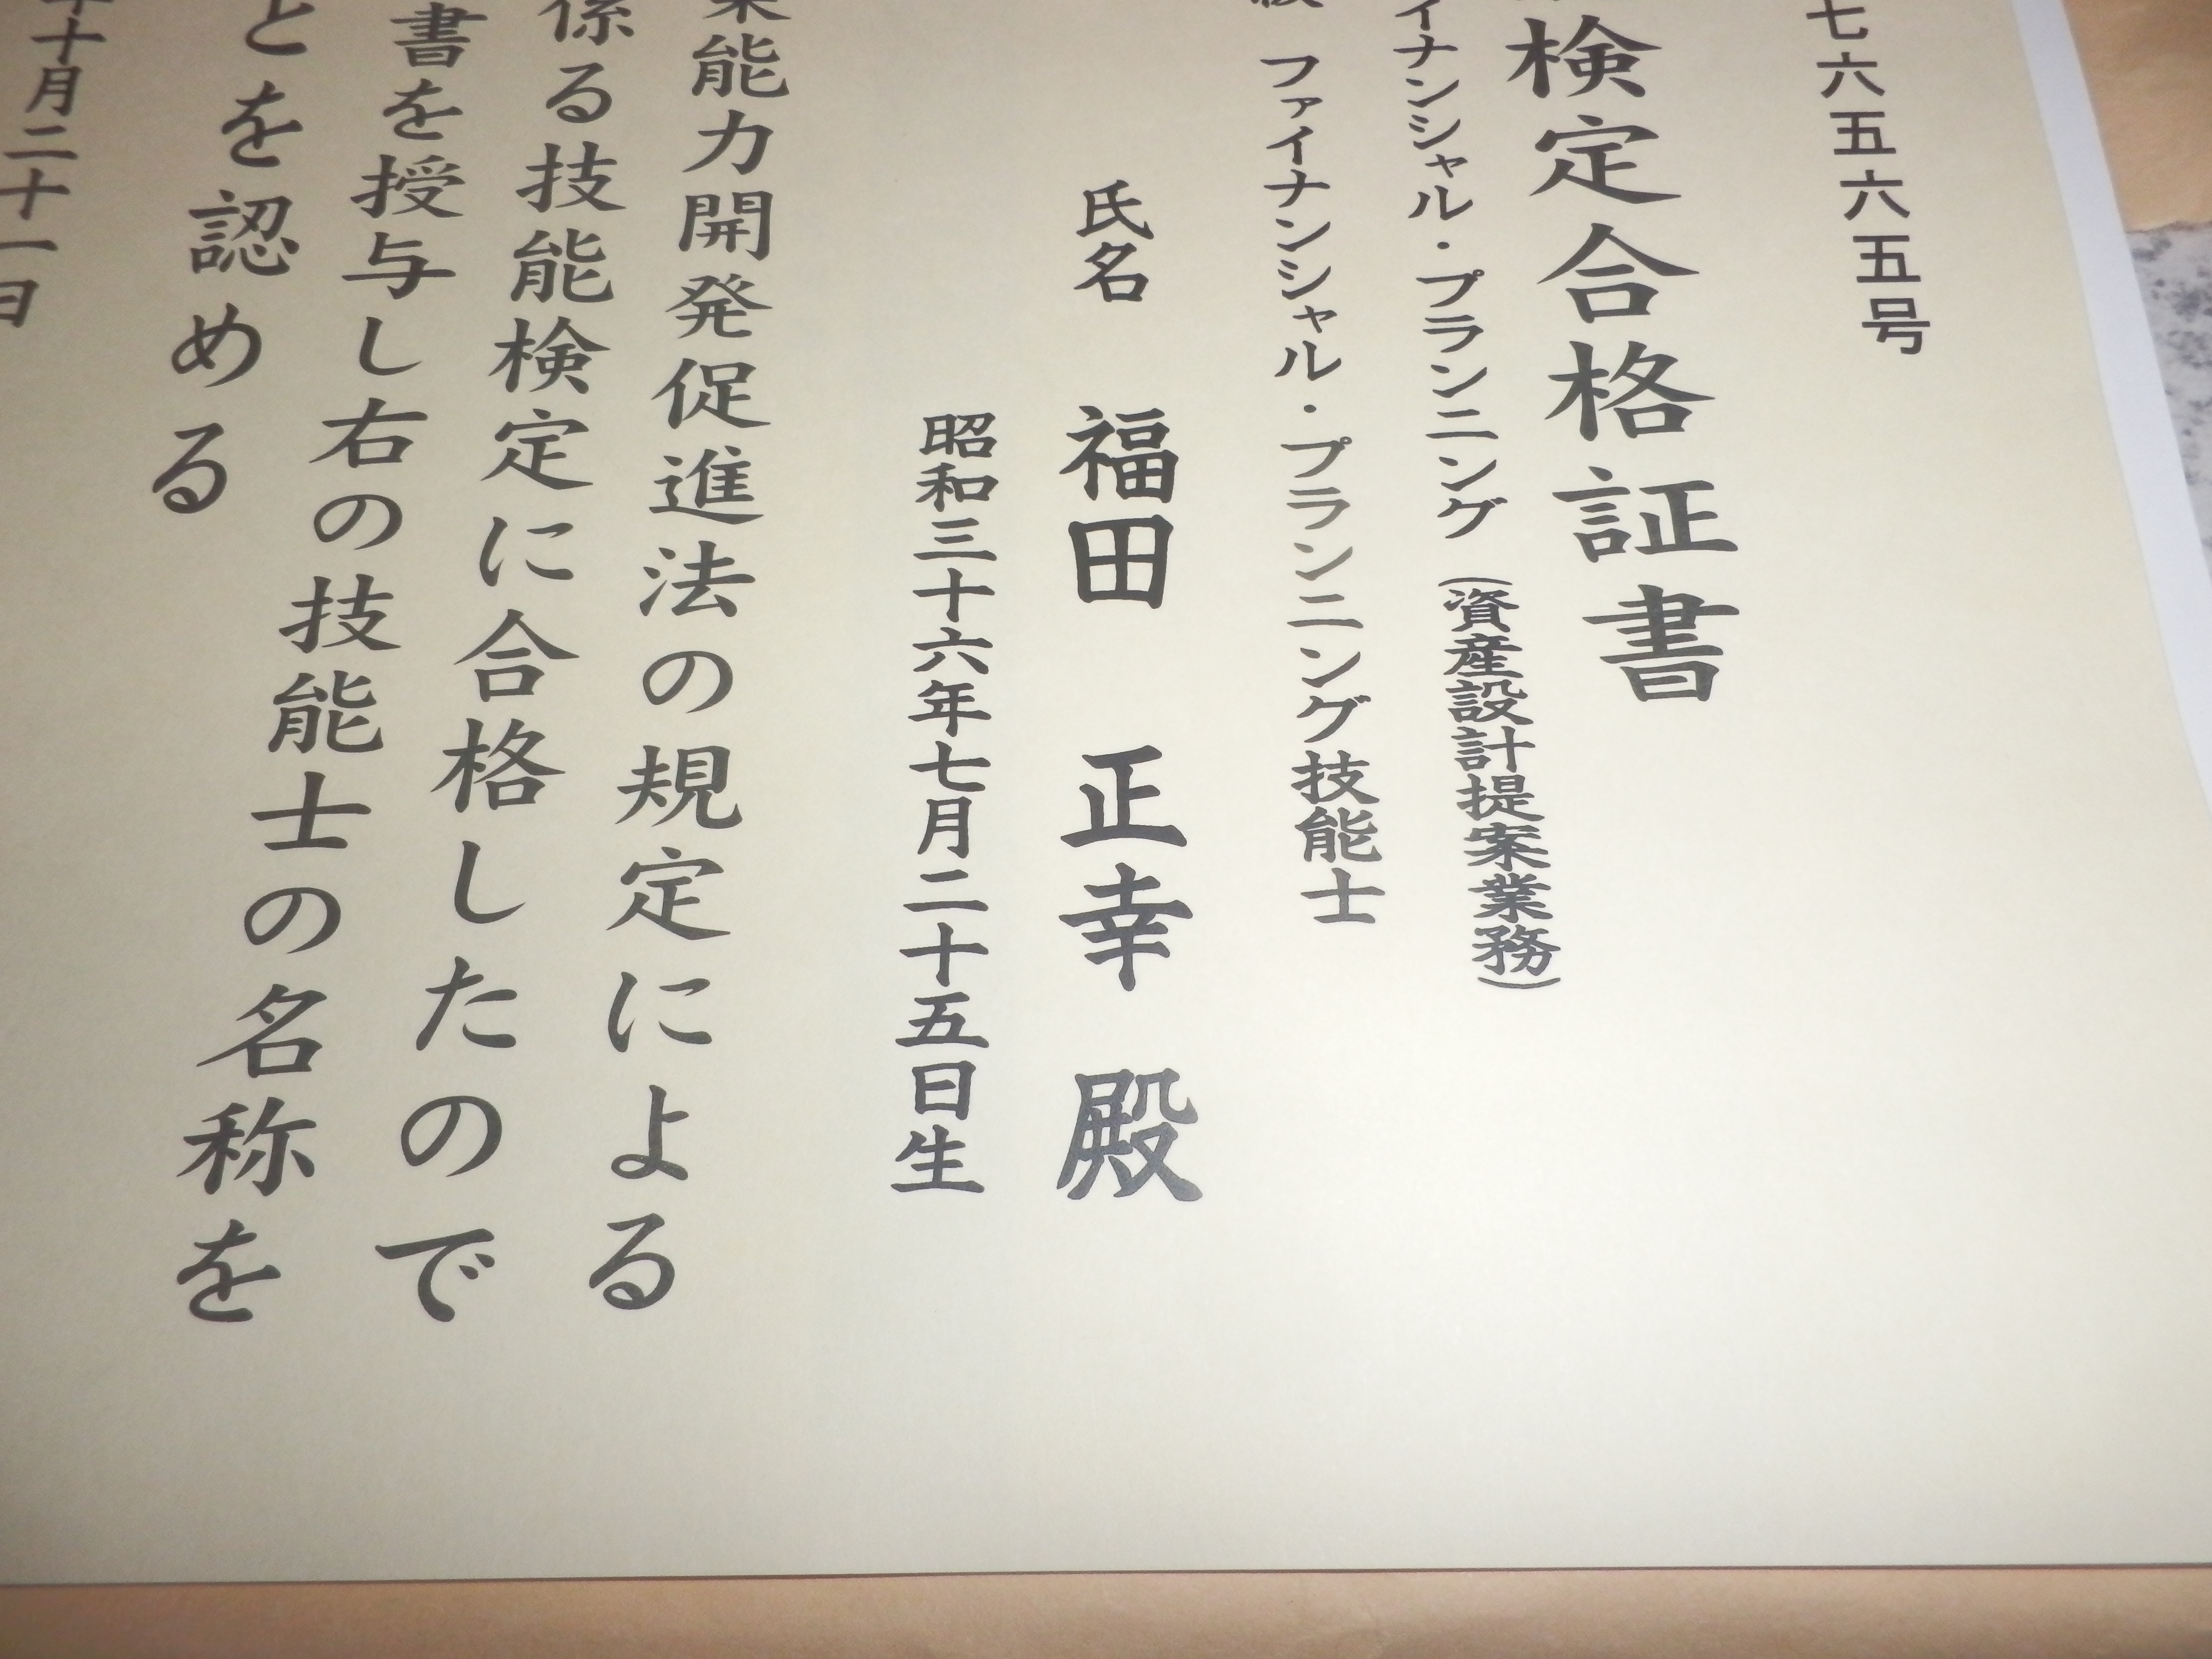 七六五六五号
検定合格証書
イナンシャル・プランニング（資産設計提案業務）
級 ファイナンシャル・プランニング技能士
氏名 福田 正幸 殿
昭和三十六年七月二十五日生
業能力開発促進法の規定による
係る技能検定に合格したので
書を授与し右の技能士の名称を
とを認める
年十月二十一日